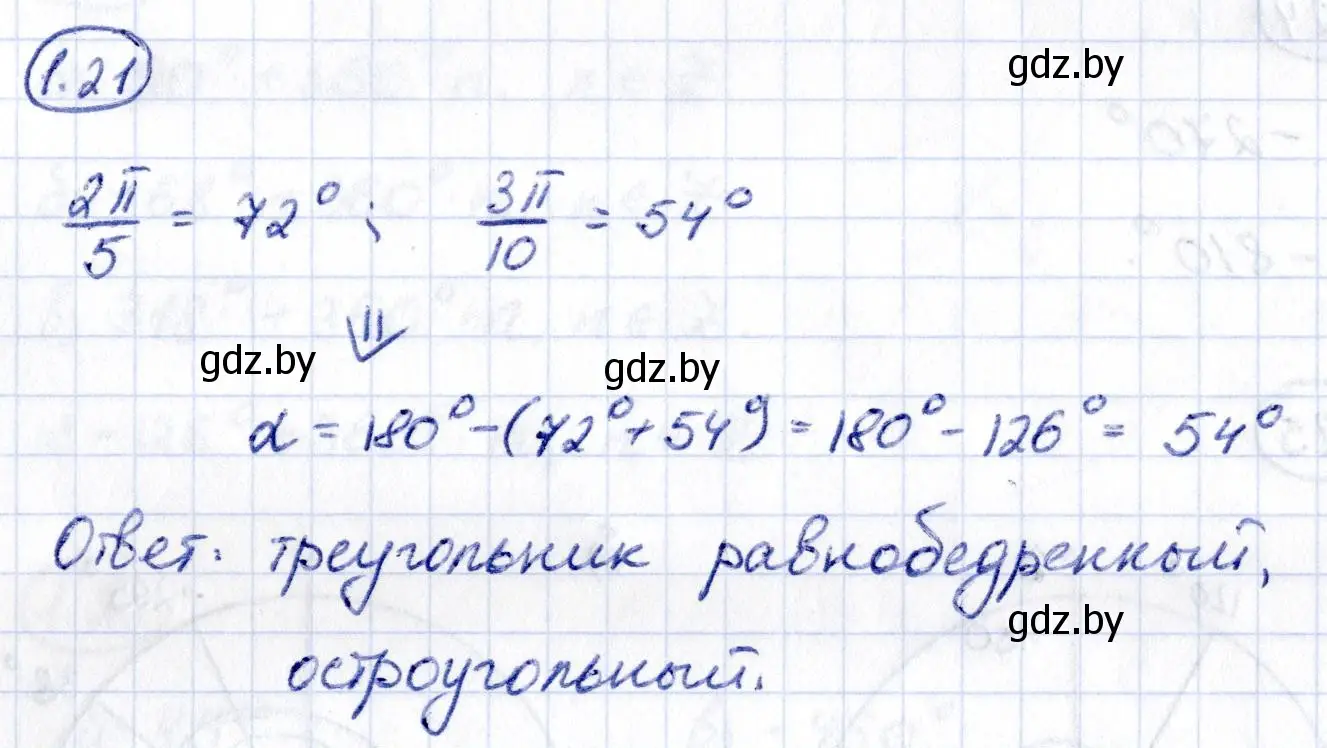 1.21
gdz.by
2π/5 = 72°; 3π/10 = 54°
⇓
gdz.by gdz.by
α = 180° - (72° + 54°) = 180° - 126° = 54°
Ответ: треугольник равнобедренный,
gdz.by
остроугольный.